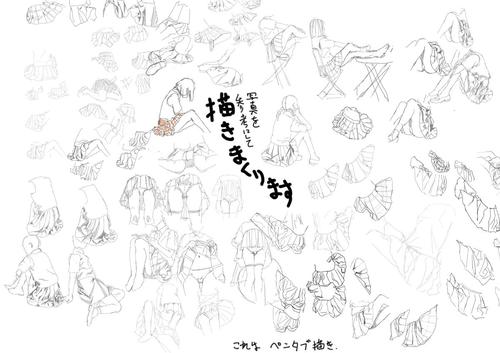 写真を
参考にして
描きまくります
これは ペンタブ描き.